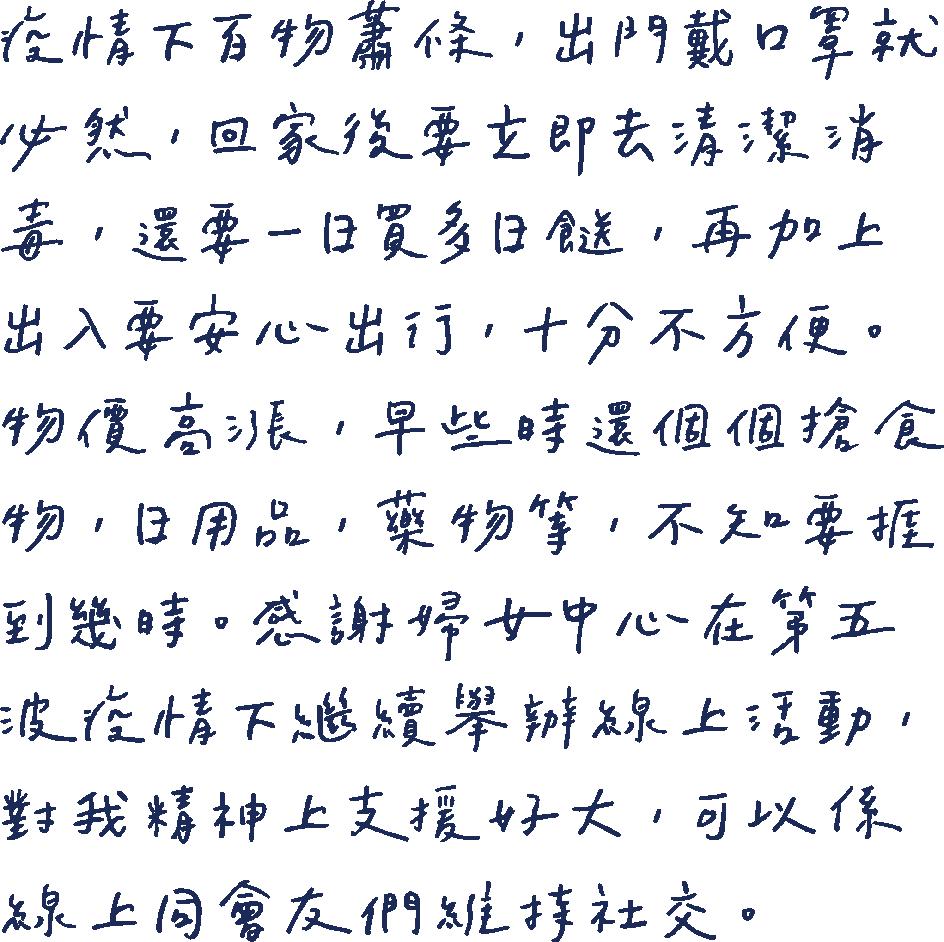 疫情下百物蕭條，出門戴口罩就
必然，回家後要立即去清潔消
毒，還要一日買多日餸，再加上
出入要安心出行，十分不方便。
物價高漲，早些時還個個搶食
物，日用品，藥物等，不知要捱
到幾時。感謝婦女中心在第五
波疫情下繼續舉辦線上活動，
對我精神上支援好大，可以係
線上同會友們維持社交。